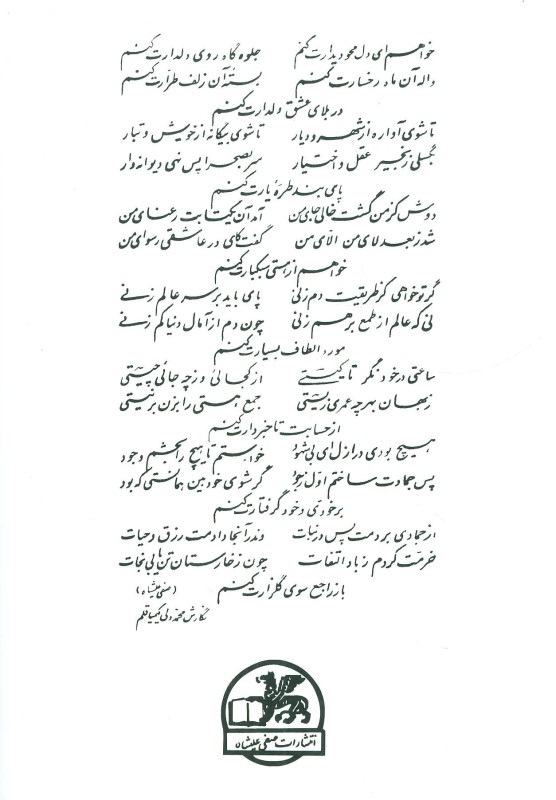 خواهم ای دل محو دیدارت کنم جلوه گاه روی دلدارت کنم
واله آن ماه رخسارت کنم بستهٔ آن زلف طرارت کنم
در بلای عشق دلدارت کنم
تا شوی آواره از شهر و دیار تا شوی بیگانه از خویش و تبار
بگسلی زنجیر عقل و اختیار سر بصحرا پس نهی دیوانه وار
پای بند طرهٔ یارت کنم
دوش کز من گشت خالی جای من آمد آن یکتا بت رعنای من
شد ز بعد لای من الای من گفت کای در عاشقی رسوای من
خواهم از هستی سبکبارت کنم
گر تو خواهی کز طریقت دم زنی پای باید بر سر عالم زنی
نی که عالم از طمع بر هم زنی چون دم از آمال دنیا کم زنی
مورد الطاف بسیارت کنم
ساعتی در خود نگر تا کیستی از کجائی وز چه جائی چیستی
در جهان بهر چه عمری زیستی جمع هستی را بزن بر نیستی
از حسابت تا خبردارت کنم
هیچ بودی در ازل ای بی شهود خواستم تا هیچ را بخشم وجود
پس جمادت ساختم اول ز جود گر شوی خودبین همانستی که بود
بر خودی و خود گرفتارت کنم
از جمادی بردمت پس در نبات وندر آنجا دادمت رزق و حیات
خرمت کردم ز باد التفات چون ز خارستان تن یابی نجات
باز راجع سوی گلزارت کنم
(صفی علیشاه)
نگارش محمد ولی کیمیا قلم
انتشارات صفی علیشاه